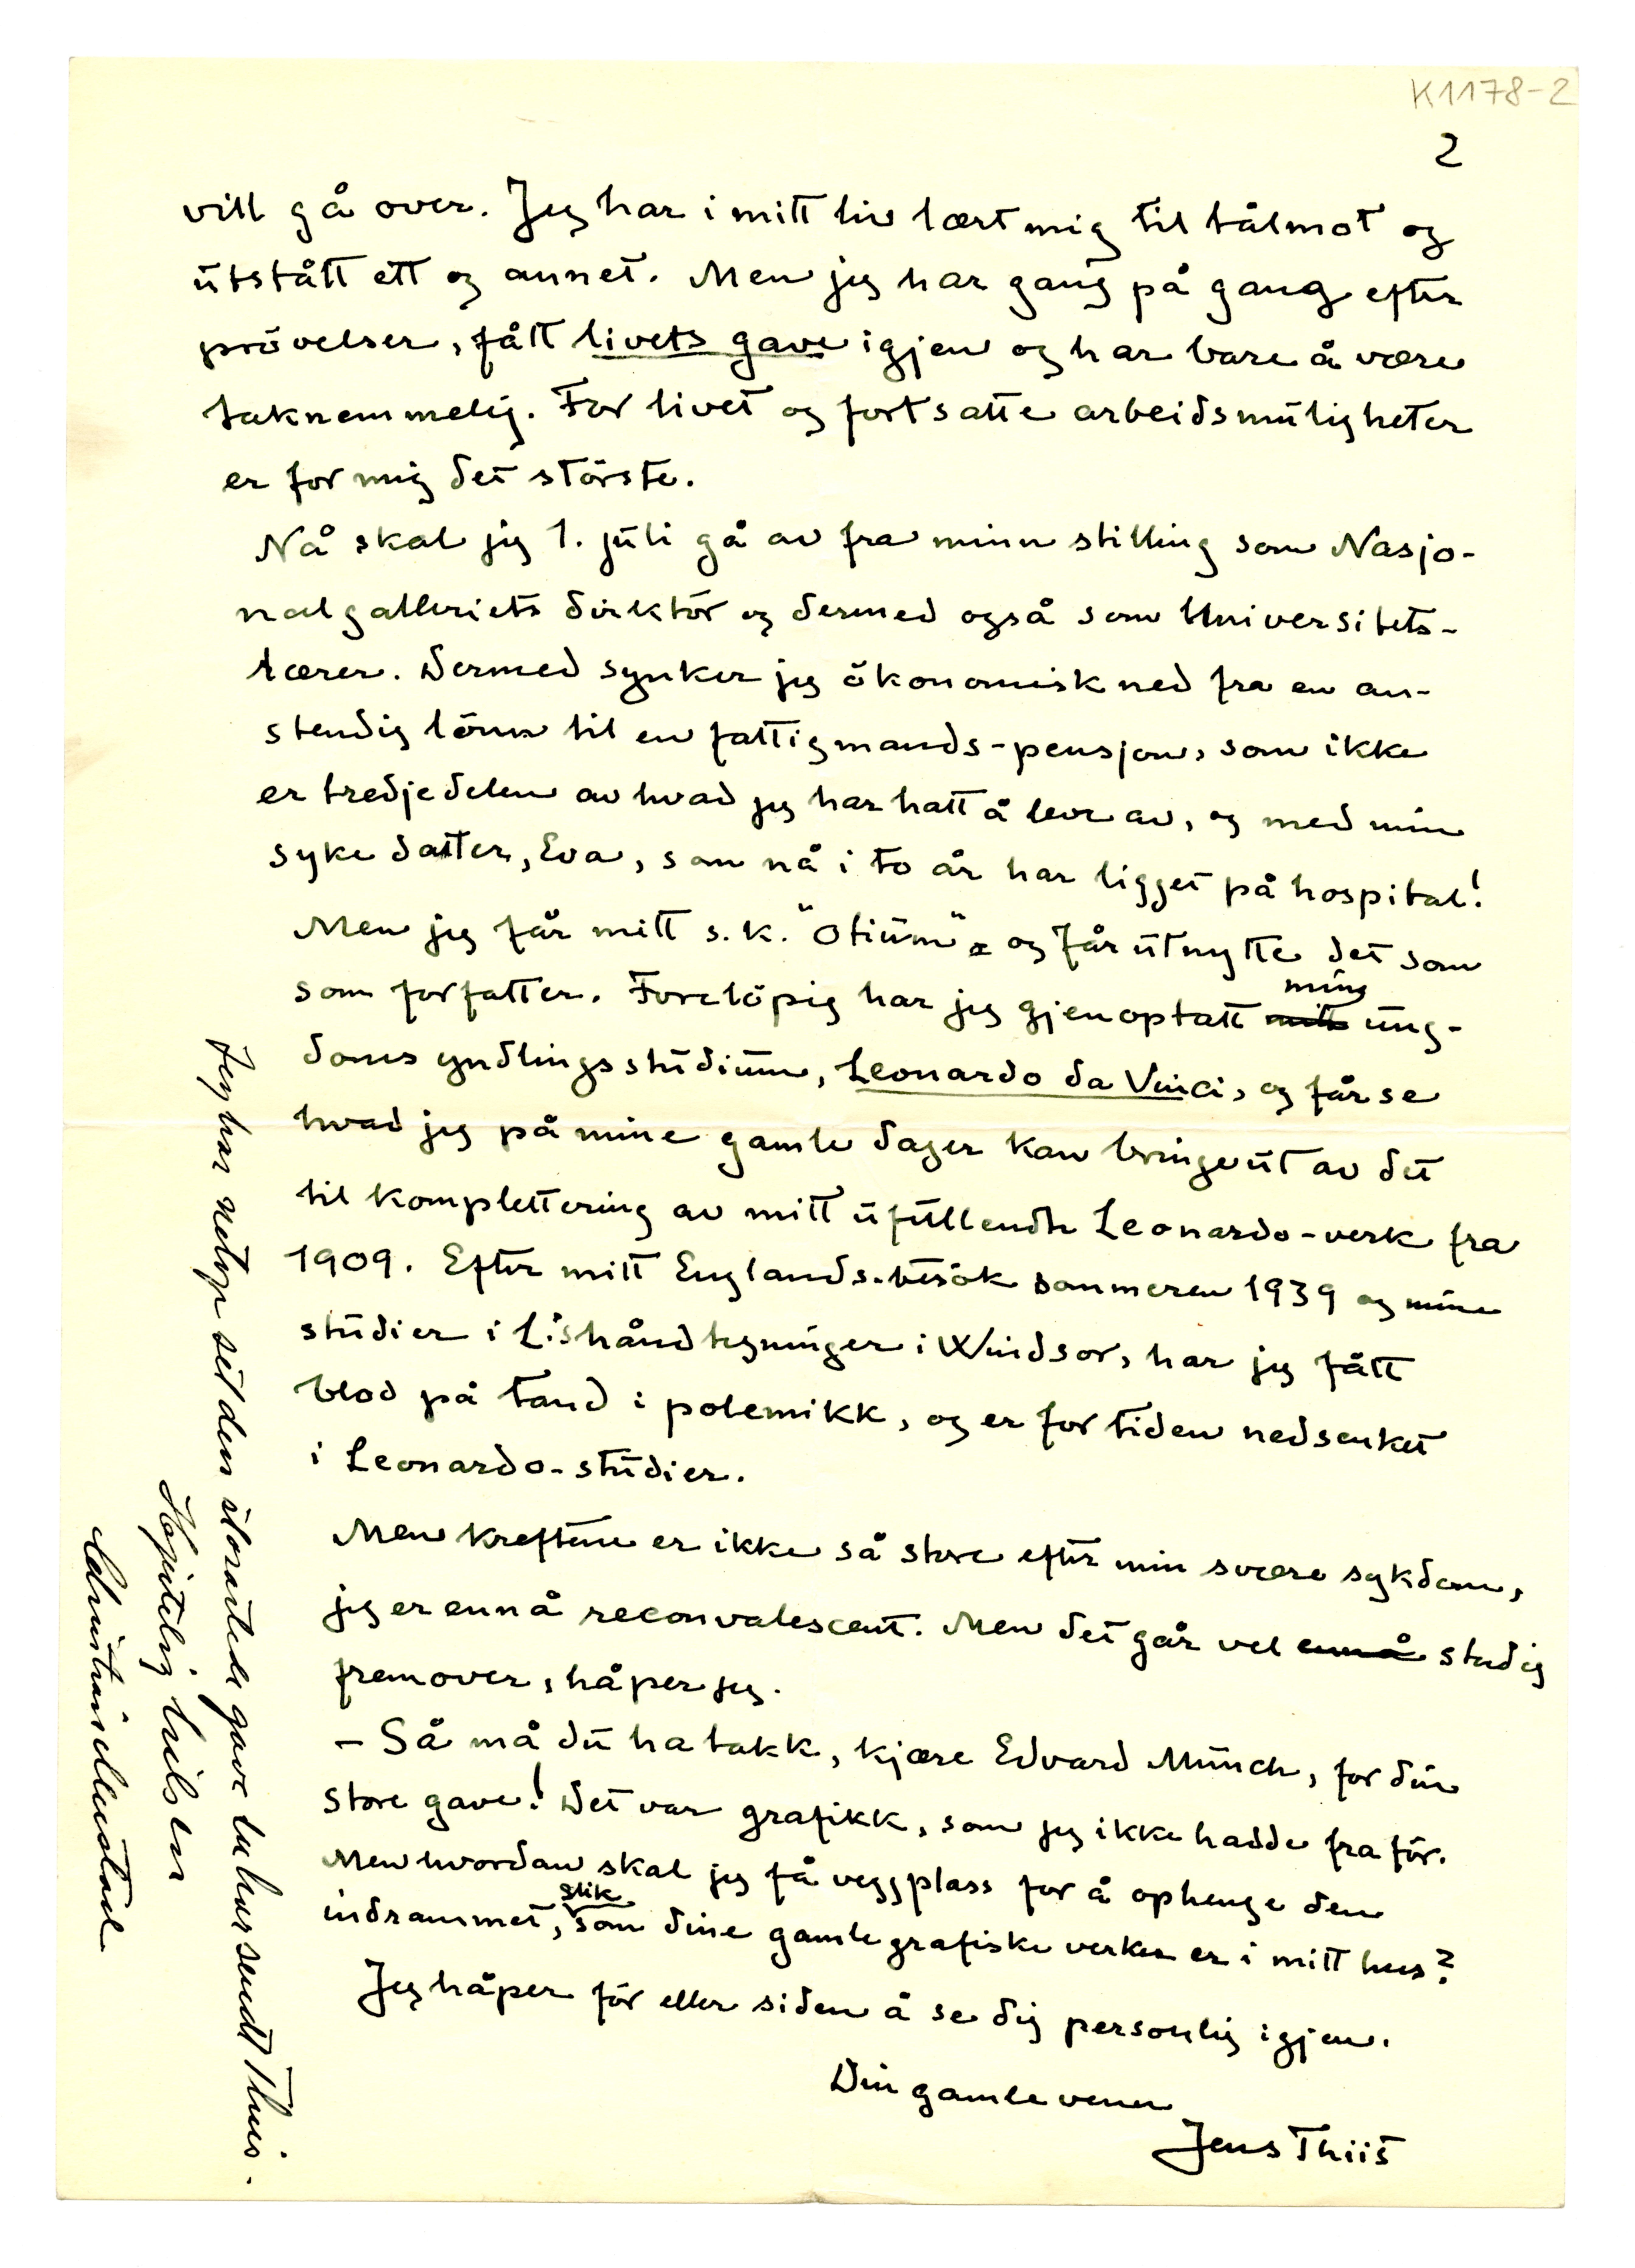 K1178-2
2
vill gå over. Jeg har i mitt liv lært mig til tålmot og
utstått ett og annet. Men jeg har gang på gang efter
prövelser, fått livets gave igjen og har bare å være
taknemmelig. For livet og fortsatte arbeidsmuligheter
er for mig det störste.
Nå skal jeg 1. juli gå av fra minn stilling som Nasjo-
nalgalleriets direktör og dermed også som Universitets-
lærer. Dermed synker jeg ökonomisk ned fra en an-
stendig lönn til en fattigmands-pensjon, som ikke
er tredjedelen av hvad jeg har hatt å leve av, og med min
syke datter, Eva, som nå i to år har ligget på hospital!
Men jeg får mitt s.k. "otium" og får utnytte det som
som forfatter. Forelöpig har jeg gjenoptatt mitt min ung-
doms yndlingsstudium, Leonardo da Vinci, og får se
hvad jeg på mine gamle dager kan bringe ut av det
til komplettering av mitt ufullendte Leonardo-verk fra
1909. Efter mitt Englands-besök sommeren 1939 og mine
studier i L.'s håndtegninger i Windsor, har jeg fått
blod på tand i polemikk, og er for tiden nedsenket
i Leonardo-studier.
Men kreftene er ikke så store efter min svære sykdom,
jeg er ennå reconvalescent. Men det går vel ennå stadig
fremover, håper jeg.
– Så må du ha takk, kjære Edvard Munch, for din
store gave! Det var grafikk, som jeg ikke hadde fra för.
Men hvordan skal jeg få veggplass for å ophenge den
indrammet, slik som dine gamle grafiske verker er i mitt hus?
Jeg håper för eller siden å se dig personlig igjen.
Din gamle venn
Jens Thiis
Jeg har netop set den storartede gave De har sendt Thiis.
hilsen